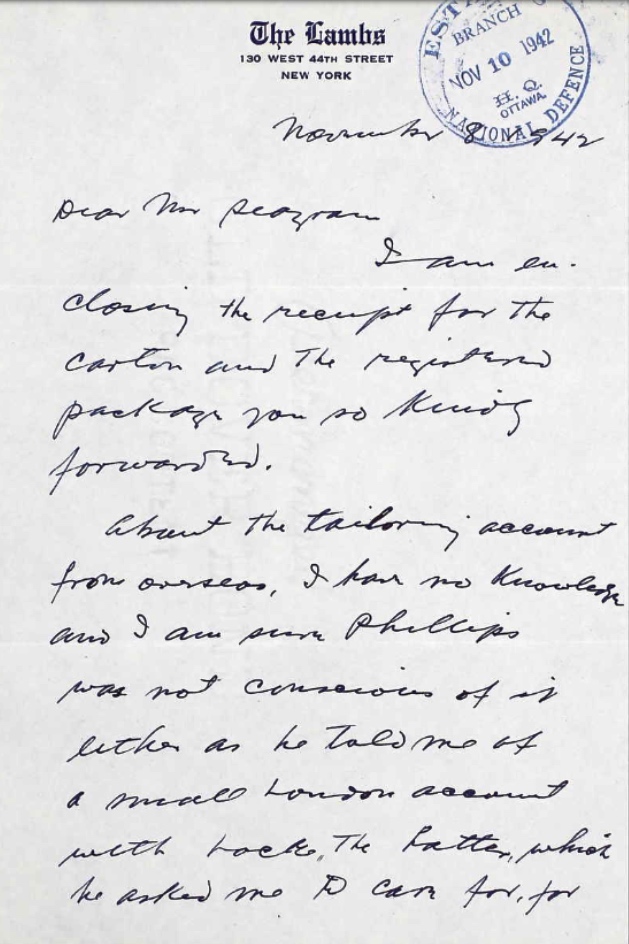 The Lambs
130 WEST 44TH STREET
NEW YORK
ESTA
BRANCH
NOV 10 1942
H. Q.
OTTAWA.
NATIONAL DEFENCE
November 8 1942
Dear Mr Seagram
I am en-
closing the receipt for the
carton and the registered
package you so kindly
forwarded.
About the tailoring account
from overseas, I have no knowledge
and I am sure Phillips
was not conscious of it
either as he told me of
a small London account
with Lock, The hatter, which
he asked me to care for, for